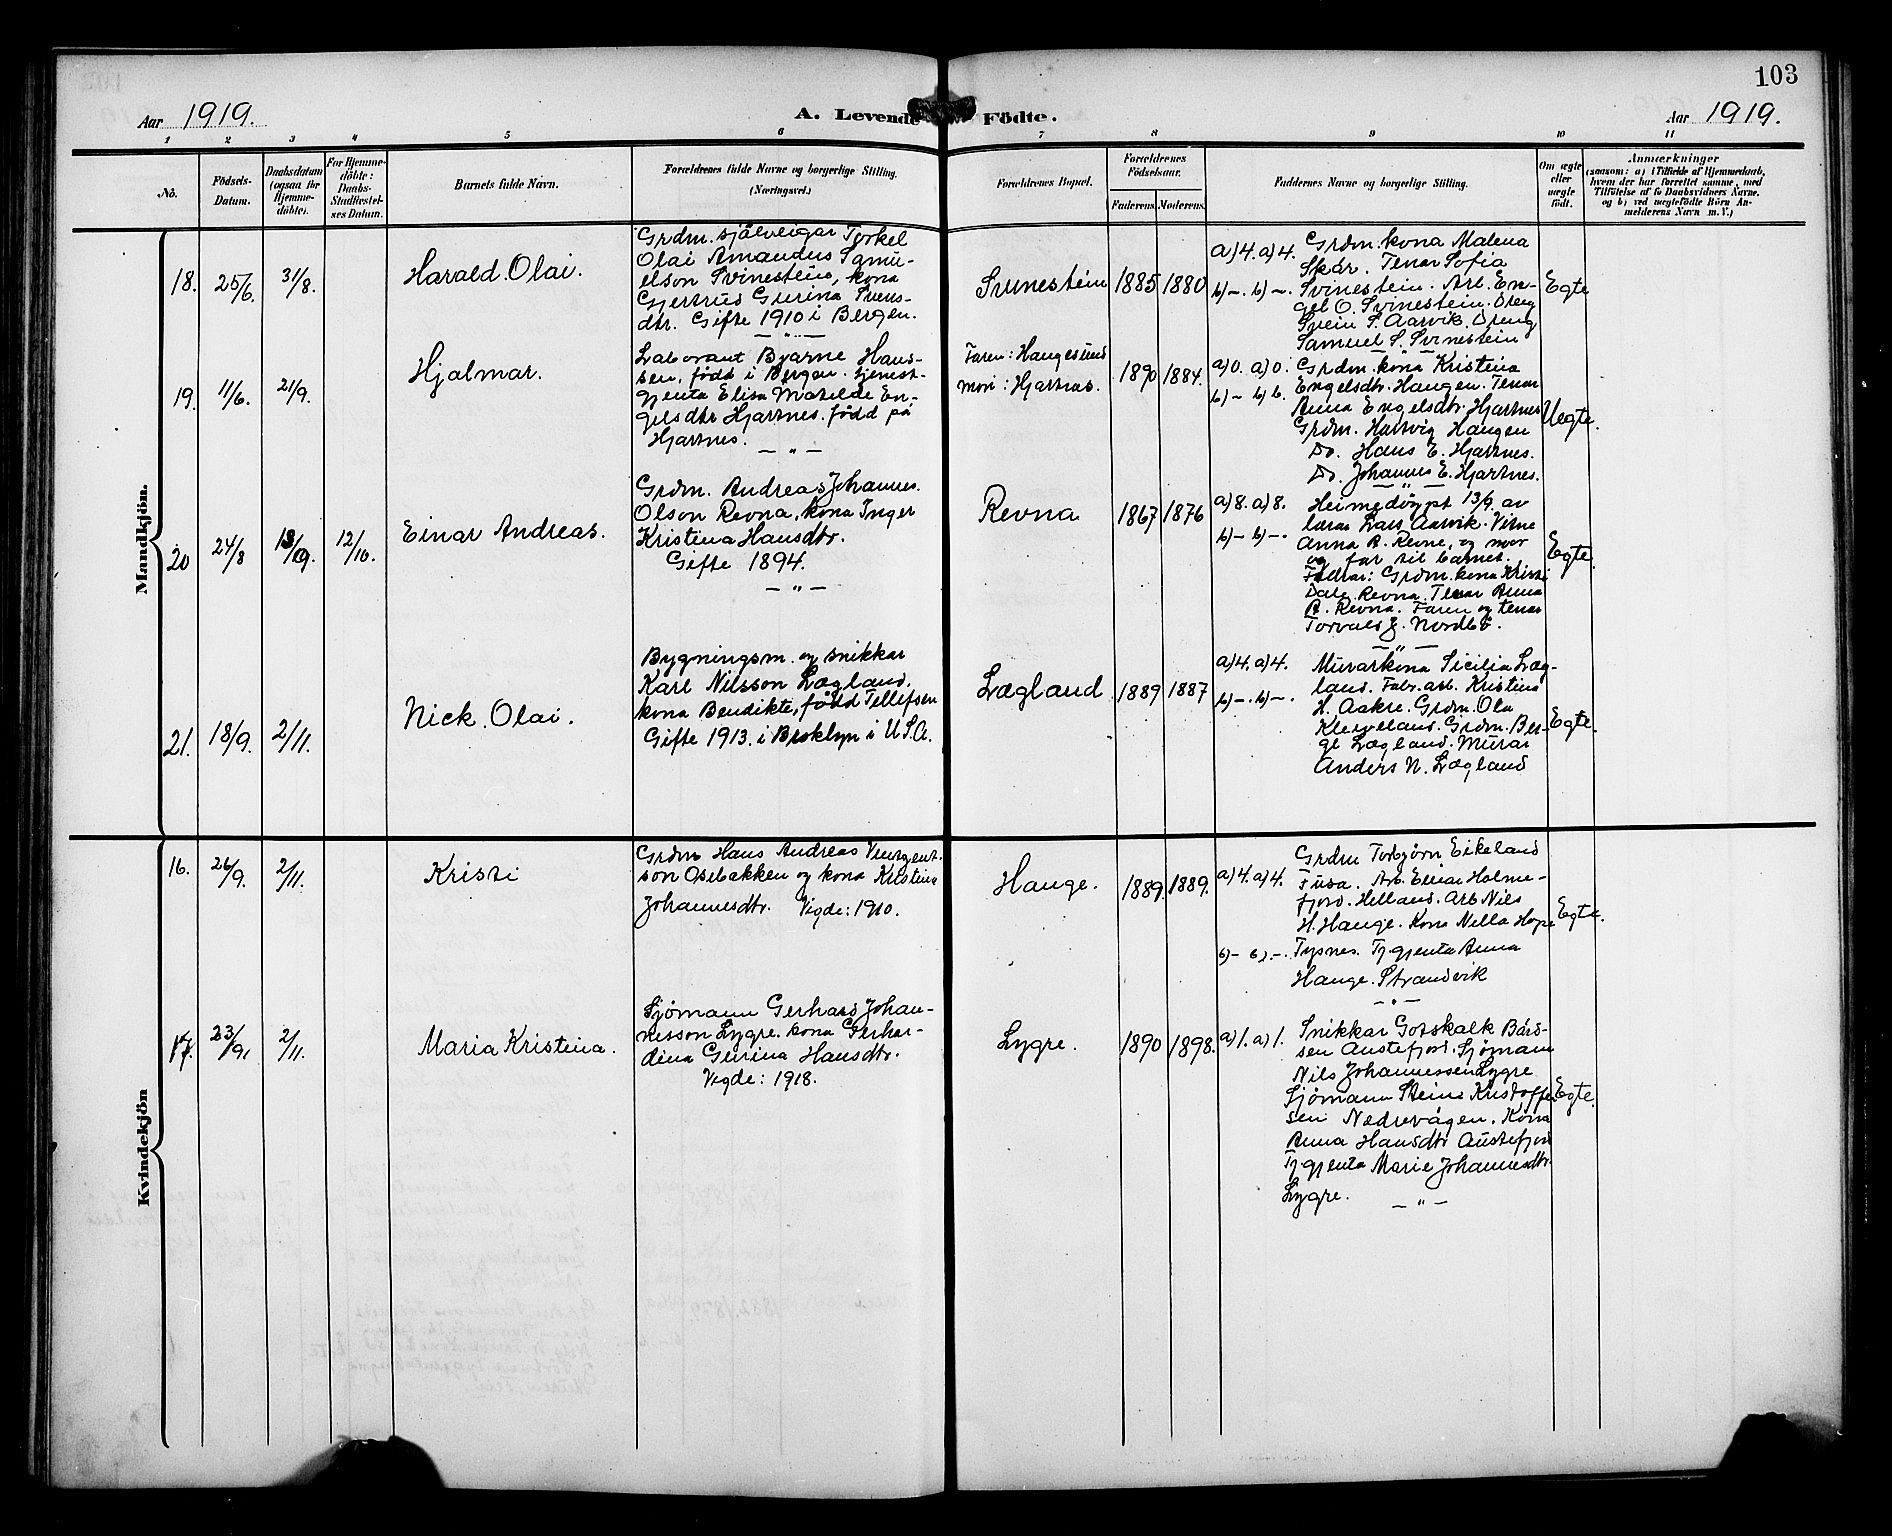 103
Aar 1919.
A. Levende Födte.
Aar 1919.
1 2 3 4 5 6 7 8 9 10 11
No.
Födsels-
Datum.
Daabsdatum
(ogsaa for
Hjemme-
döbte).
For Hjemme-
döbte:
Daabs-
Stadfæstel-
ses Datum.
Barnets fulde Navn.
Forældrenes fulde Navne og borgerlige Stilling.
(Næringsvei.)
Forældrenes Bopæl.
Forældrenes
Födselsaar.
Faderens. Moderens.
Faddernes Navne og borgerlige Stilling.
Om ægte
eller
uægte
födt.
Anmærkninger
(saasom: a) i Tilfælde af Hjemmedaab,
hvem der har forrettet samme, med
Tilföielse af to Daabsvidners Navne.
og b) ved uægtefödte Börn An-
melderens Navn m. V.)
Mandkjön.
18. 25/6. 31/8. Harald Olai.
Grdm. sjølveigar Torkel
Olai Amandus Samu-
elson Svinestein, kona
Gjertrud Gurina Svens-
dtr. Gifte 1910 i Bergen.
— " —
Svinestein 1885 1880
a) 4. a) 4. Grdm. kona Malena
Skår. Tenar Sofia
b) —. b) —. Svinestein. Arb. En-
gel O. Svinestein. Dreng
Svein S. Aarvik. Dreng
Samuel S. Svinestein
Egte
19. 11/6. 21/9. Hjalmar.
Laborant Bjarne Hans-
sen, fødd i Bergen. tjenest-
gjenta Elisa Matilde En-
gelsdtr Hjartnes. fødd på
Hjartnes.
— " —
Faren: Haugesund
mori: Hjartnas.
1890 1884.
a) 0. a) 0. Grdm. kona Kristina
b) — b) b. Engelsdtr. Haugen. Tenar
Anna Engelsdtr. Hjartnes
Grdm. Hartvig Haugen
Do. Hans E. Hjartnes.
Do. Johannes E. Hjartnes.
Uegte.
20 24/8 13/9. 12/10. Einar Andreas.
Grdm. Andreas Johannes
Olson Revna, kona Inger
Kristina Hansdtr.
Gifte 1894.
— " —
Revna 1867 1876
a) 8. a) 8. Heimedøypt 13/9. av
b) — b) —. lærar Lars Aarvik. Vitne
Anna R. Revne, og mor
og far til barnet.
Fadrar: Grdm. kona Kristi
Dale Revna. Tenar Anna
R. Revna. Faren og tenar
Torvald J. Nordbø.
— " —
Egte.
21. 18/9. 2/11. Nick. Olai.
Bygningsm. og snikkar
Karl Nilsson Lægland.
kona Bendikte, fødd Tellefsen
Gifte 1913. i Broklyn i U.S.A.
Lægland 1889 1887
a) 4. a) 4. Murarkona Sicilia Læg-
b) —. b) —. land. Fabr. arb. Kristina
H. Aakre. Grdm. Ola
Kleiveland. Grdm. Ber-
ge Lægland. Murar
Anders N. Lægland
Egte.
Kvindekjön
16. 26/9. 2/11. Kristi
Grdm Hans Andreas
son Osebakken og kona Kristina
Johannesdtr. Vigde: 1910.
Hauge. 1889. 1889.
a) 4. a) 4. Grdm Torbjørn Eikeland
Fusa. Arb. Einar Holme-
fjord. Helland. Arb Nils
H. Hauge. Kona Nella Hope
b) — b) —. Tysnes. Tj. gjenta Anna
Hauge. Strandvik
— " —
Egte.
17. 23/9. 2/11. Maria Kristina.
Sjømann Gerhard Johan-
nesson Lygre. kona Gerhar-
dina Gurina Hansdtr.
Vigde: 1918.
Lygre. 1890 1898.
a) 1. a) 1. Snikkar Gotskalk Bård-
sen Austefjord. Sjømann
Nils Johannessen Lygre
Sjømann Stein Kristoffer
sen Nedrevågen. Kona
Anna Hansdtr Austefjord
Tj. gjenta Marie Johannesdtr.
Lygre.
— " —
Egte.